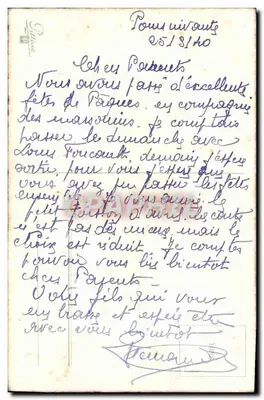 Pour suivante
25/3/40
Chers Parents
Nous avons passé d'excellentes
fêtes de Pâques en compagnie
des je comptais
passer le dimanche avec
Louis Foucault demain j'espère
sortir, pour vous j'espère que
vous avez pu passer les fêtes
ensemble je vous envoie le
petit poisson d'avril la carte
n'est pas des mieux mais le
choix est réduit. Je comptes
pouvoir vous lire bientôt
chers Parents
Votre fils qui vous
embrasse et espère être
avec vous bientôt